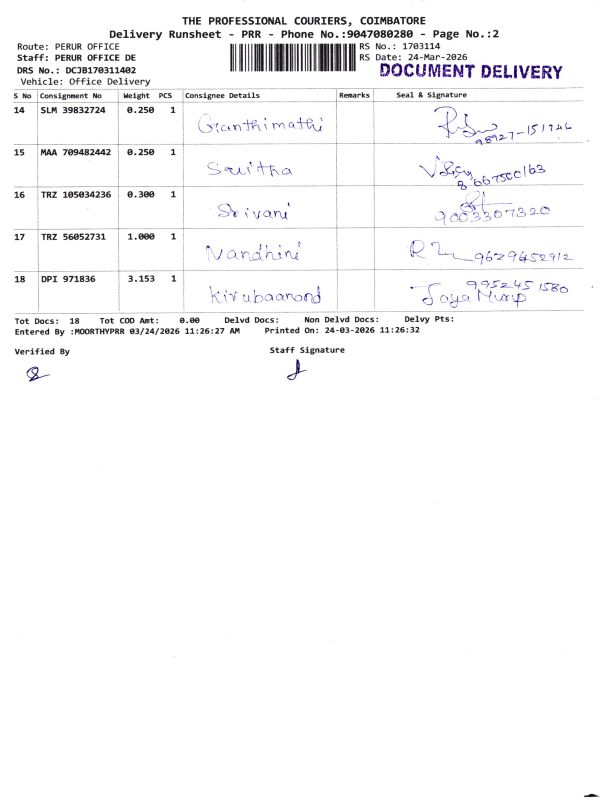 THE PROFESSIONAL COURIERS, COIMBATORE
Delivery Runsheet - PRR - Phone No.:9047080280 - Page No.:2
Route: PERUR OFFICE RS No.: 1703114
Staff: PERUR OFFICE DE RS Date: 24-Mar-2026
DRS No.: DCJB170311402 DOCUMENT DELIVERY
Vehicle: Office Delivery
S No Consignment No Weight PCS Consignee Details Remarks Seal & Signature
14 SLM 39832724 0.250 1 Gianthimathi
15 MAA 709482442 0.250 1 Savitha
16 TRZ 105034236 0.300 1 Srivani 9003307320
17 TRZ 56052731 1.000 1 Nandhini 9629452912
18 DPI 971836 3.153 1 Kirubaanand 9952451580
Tot Docs: 18 Tot COD Amt: 0.00 Delvd Docs: Non Delvd Docs: Delvy Pts:
Entered By :MOORTHYPRR 03/24/2026 11:26:27 AM Printed On: 24-03-2026 11:26:32
Verified By Staff Signature